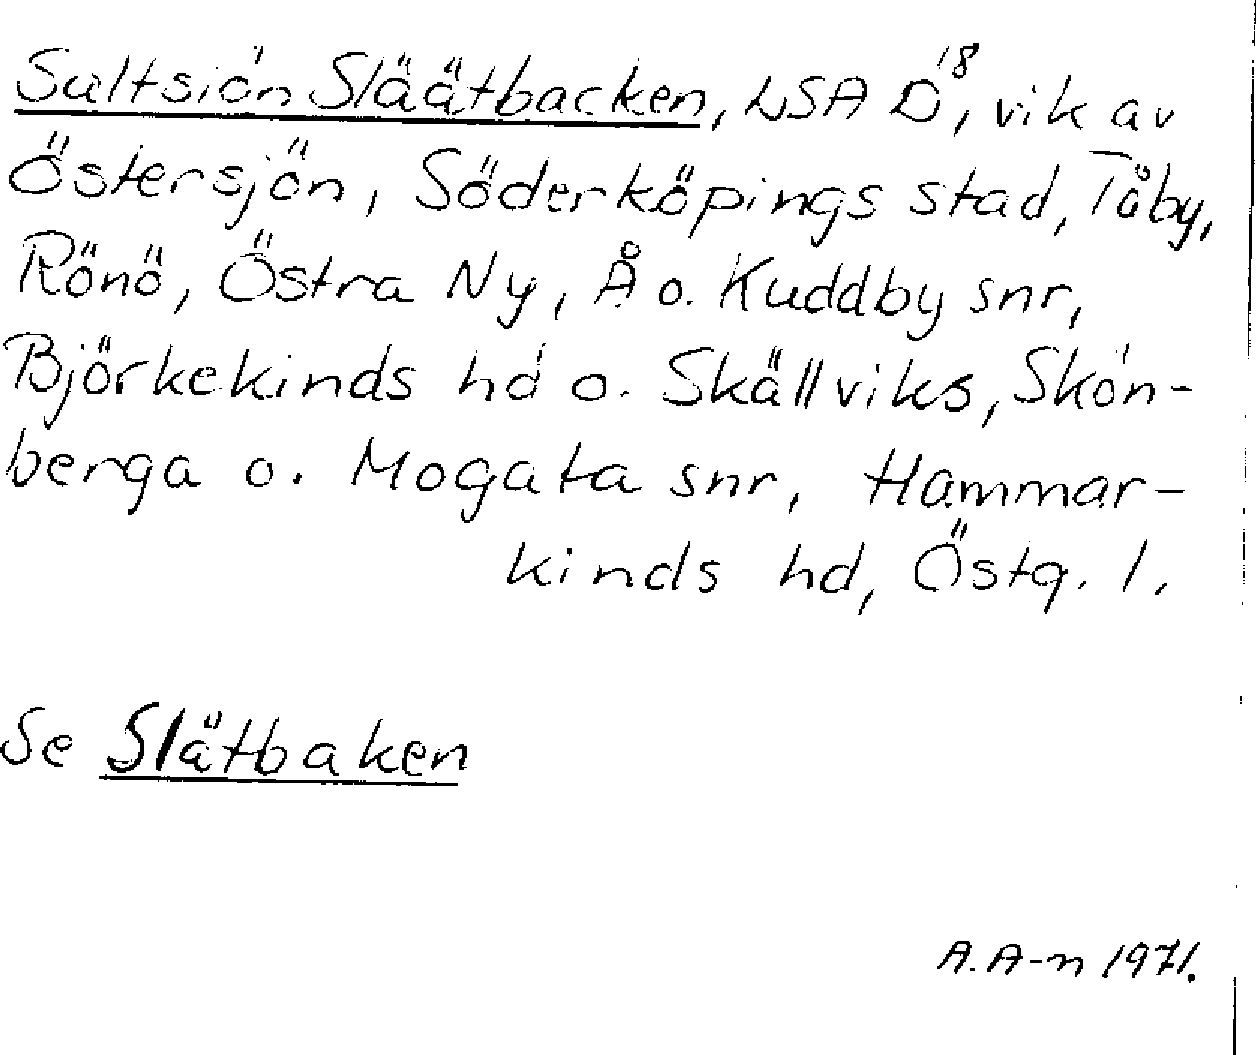 Saltsión Släätbacken, LSA D18, vik av
Östersjön, Söderköpings stad, Tåby,
Rönö, Östra Ny, Å o. Kuddby snr,
Björkekinds hd o. Skällviks, Skön-
berga o. Mogata snr, Hammar-
kinds hd, Östg. l.
Se Slätbaken
A. A-n 1971.